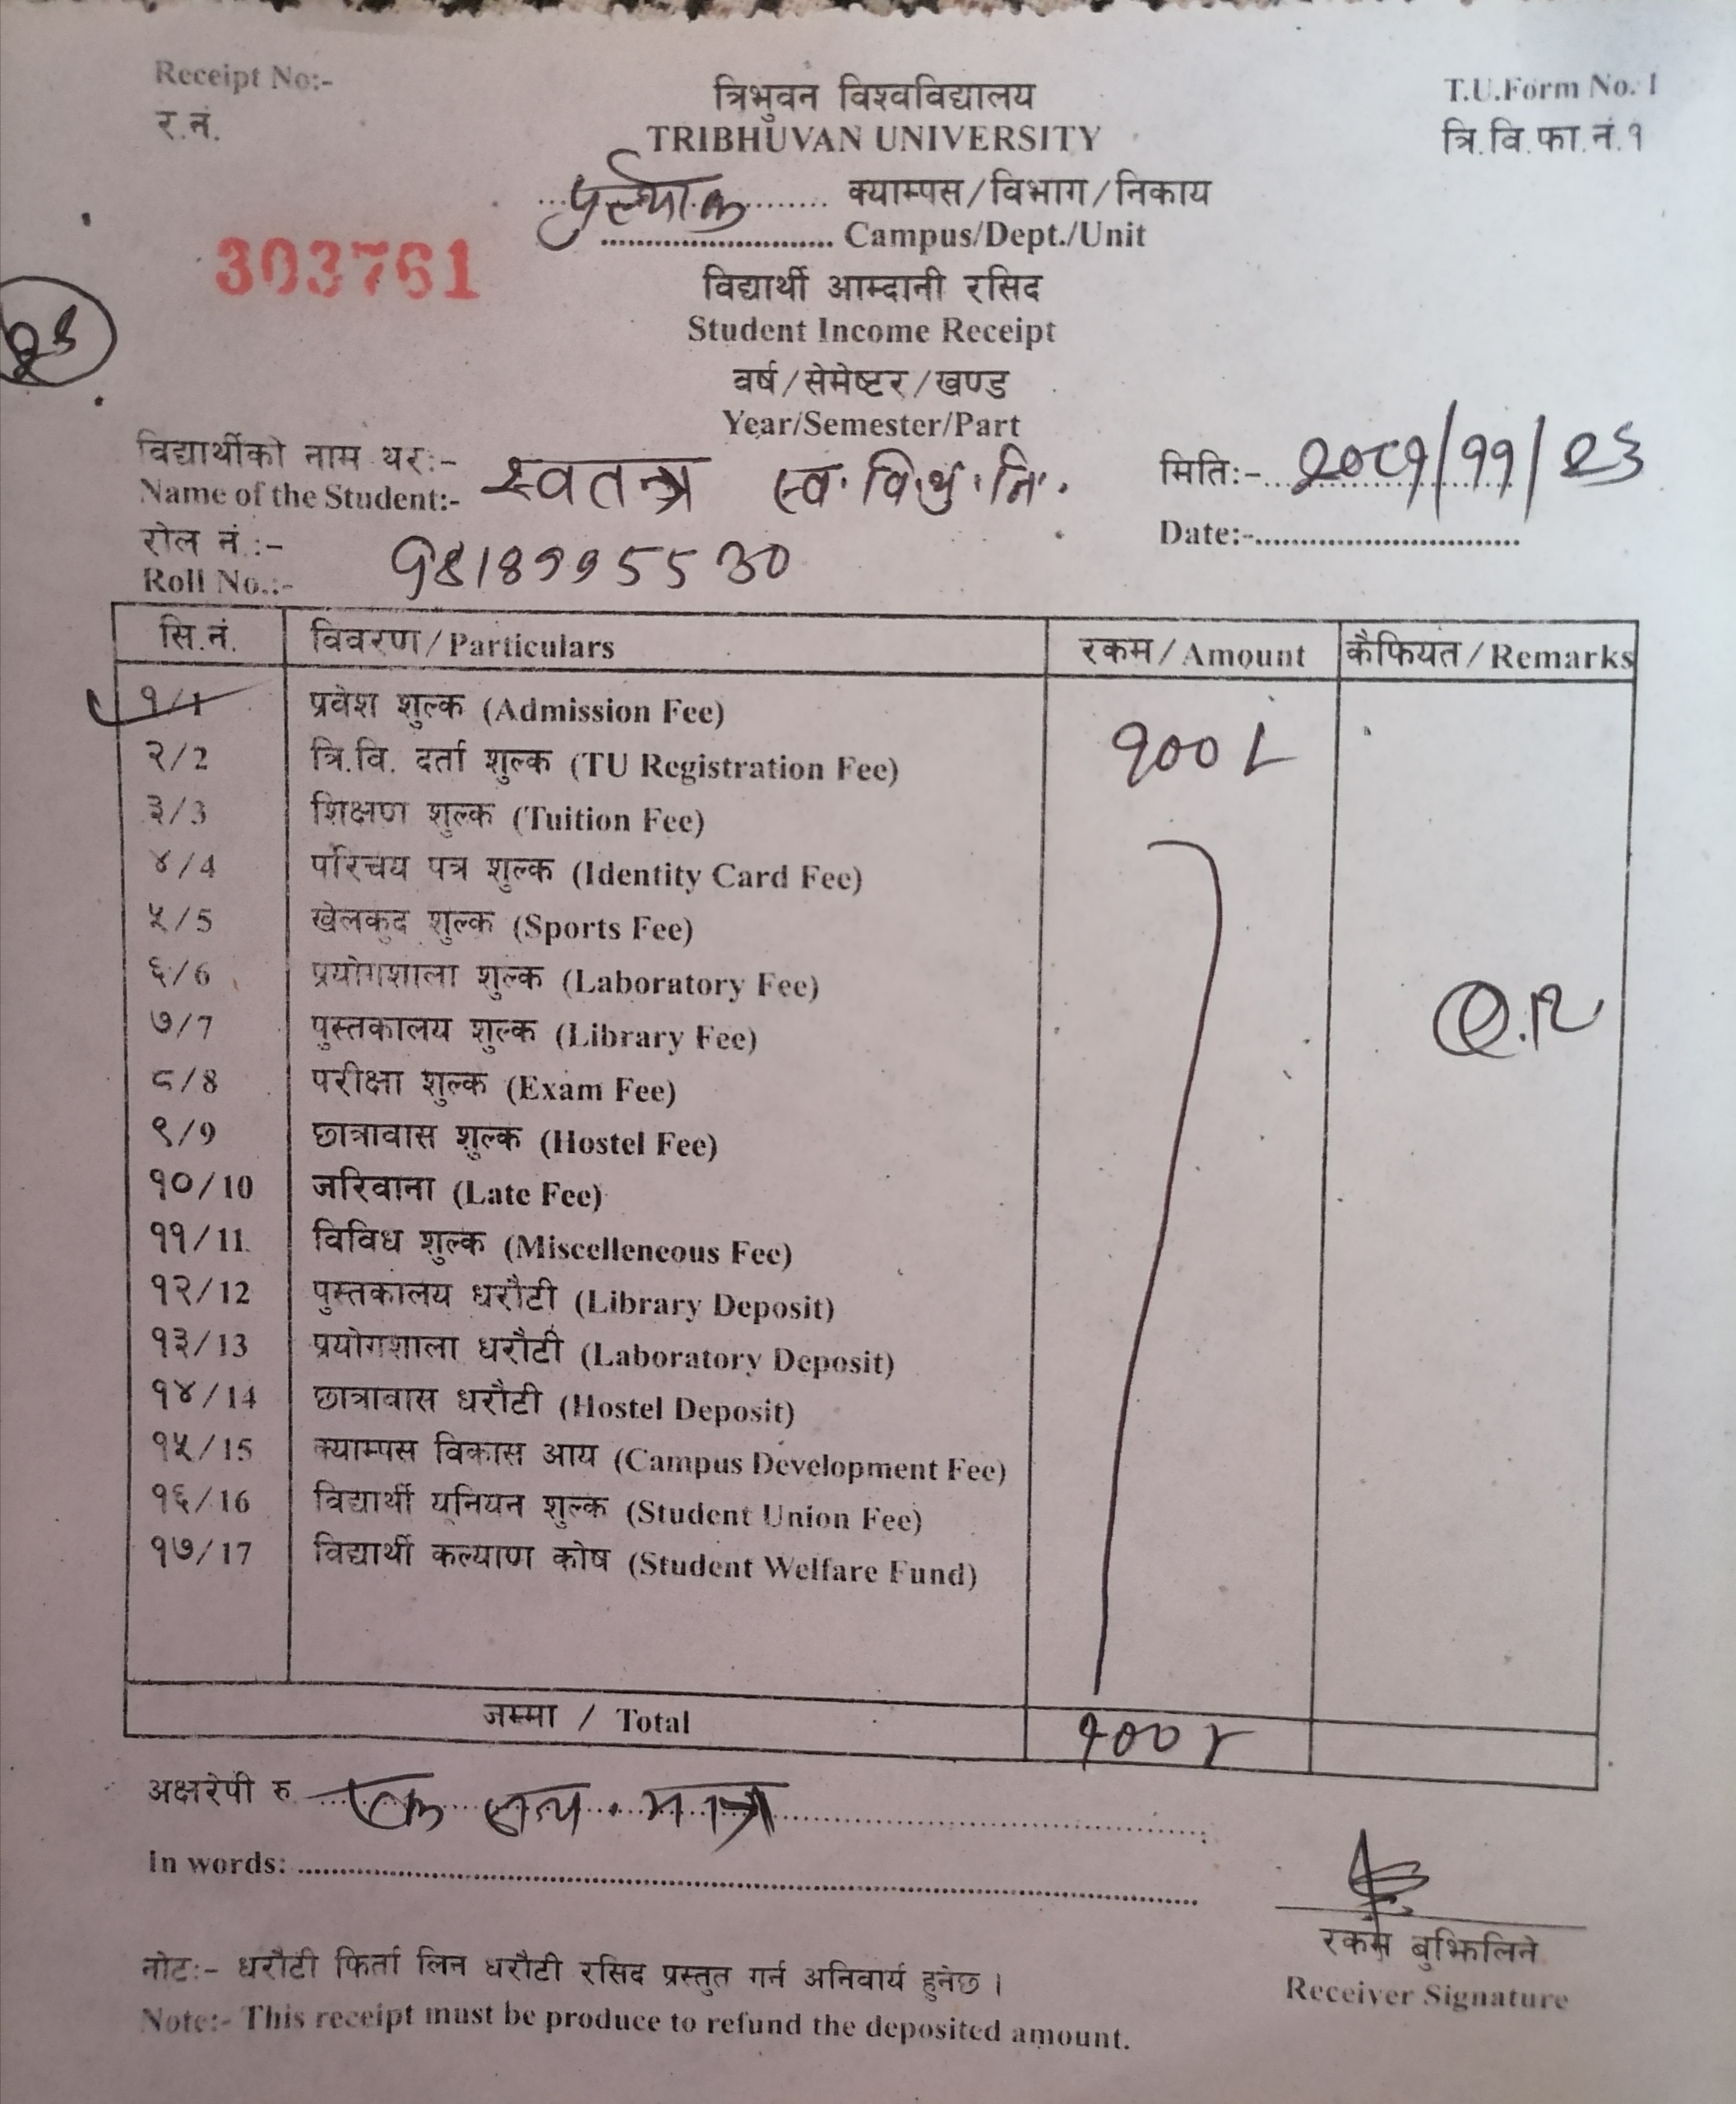 Receipt No:-
र.नं.
त्रिभुवन विश्वविद्यालय
TRIBHUVAN UNIVERSITY
T.U.Form No. 1
त्रि.वि.फा.नं.१
क्याम्पस/विभाग/निकाय
Campus/Dept./Unit
303761
विद्यार्थी आम्दानी रसिद
Student Income Receipt
वर्ष/सेमेष्टर/खण्ड
Year/Semester/Part
विद्यार्थीको नाम थरः-
Name of the Student:- स्वतन्त्र स्व. वि.यु.नि.
मितिः- २०८१/११/२६
Date:-
रोल नं.:-
Roll No.:- 9818995530
सि.नं. विवरण/Particulars रकम/Amount कैफियत/Remarks
१/1 प्रवेश शुल्क (Admission Fee) १००/-
२/2 त्रि.वि. दर्ता शुल्क (TU Registration Fee)
३/3 शिक्षण शुल्क (Tuition Fee)
४/4 परिचय पत्र शुल्क (Identity Card Fee)
५/5 खेलकुद शुल्क (Sports Fee)
६/6 प्रयोगशाला शुल्क (Laboratory Fee)
७/7 पुस्तकालय शुल्क (Library Fee) Q.R
८/8 परीक्षा शुल्क (Exam Fee)
९/9 छात्रावास शुल्क (Hostel Fee)
१०/10 जरिवाना (Late Fee)
११/11 विविध शुल्क (Miscelleneous Fee)
१२/12 पुस्तकालय धरौटी (Library Deposit)
१३/13 प्रयोगशाला धरौटी (Laboratory Deposit)
१४/14 छात्रावास धरौटी (Hostel Deposit)
१५/15 क्याम्पस विकास आय (Campus Development Fee)
१६/16 विद्यार्थी यूनियन शुल्क (Student Union Fee)
१७/17 विद्यार्थी कल्याण कोष (Student Welfare Fund)
जम्मा / Total १००/-
अक्षरेपी रु एक सय मात्र
In words:
रकम बुझिलिने
Receiver Signature
नोटः- धरौटी फिर्ता लिन धरौटी रसिद प्रस्तुत गर्न अनिवार्य हुनेछ ।
Note:- This receipt must be produce to refund the deposited amount.